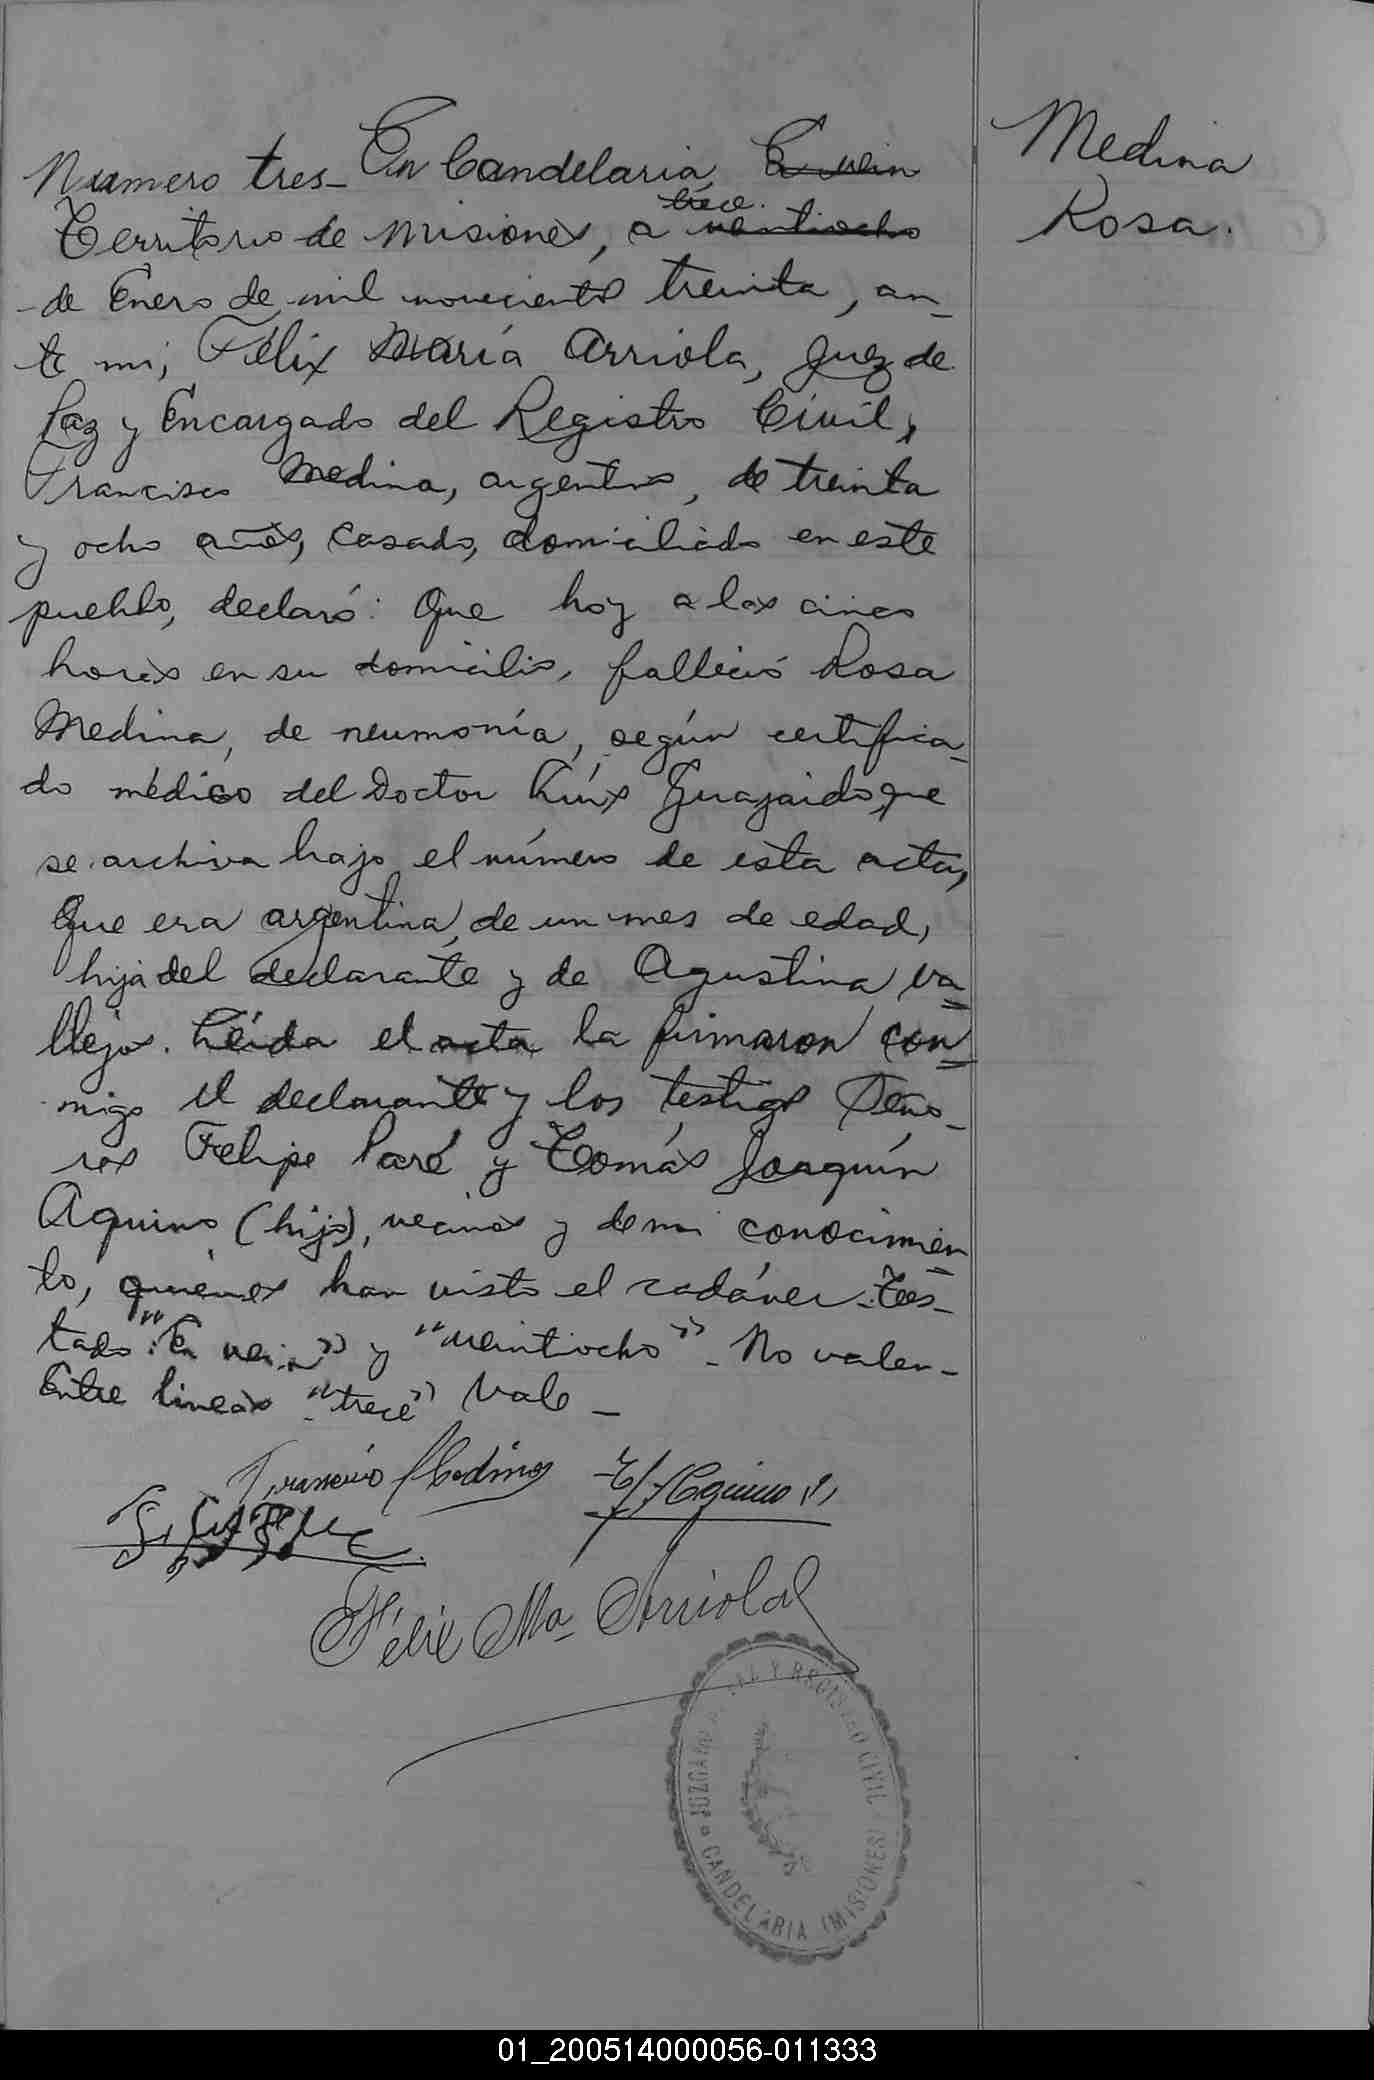 Medina
Rosa.
Numero tres_ En Candelaria, En vein
Territorio de Misiones, a veintiocho
trece.
de Enero de mil novecientos treinta, an_
te mi, Félix María Arriola, Juez de
Paz y Encargado del Registro Civil,
Francisco Medina, argentino, de treinta
y ocho años, casado, domiciliado en este
pueblo, declaró: Que hoy a las cinco
horas en su domicilio, falleció Rosa
Medina, de neumonía, según certifica_
do médico del Doctor que
se archiva bajo el número de esta acta,
Que era argentina, de un mes de edad,
hija del declarante y de Agustina Va=
llejos. Leída el acta la firmaron con=
migo el declarante y los testigos Seño_
res Felipe Paré y Tomás Joaquín
Aquino (hijo), vecinos y de mi conocimien=
to, quienes han visto el cadáver. Tes_
tado: "En vein" y "veintiocho" _ No valen_
Entre lineas "trece" Vale _
Francisco Medina T. J. Aquino (h)
Félix Ma Arriola
JUZGADO DE PAZ Y REGISTRO CIVIL
CANDELARIA (MISIONES)
01_200514000056-011333